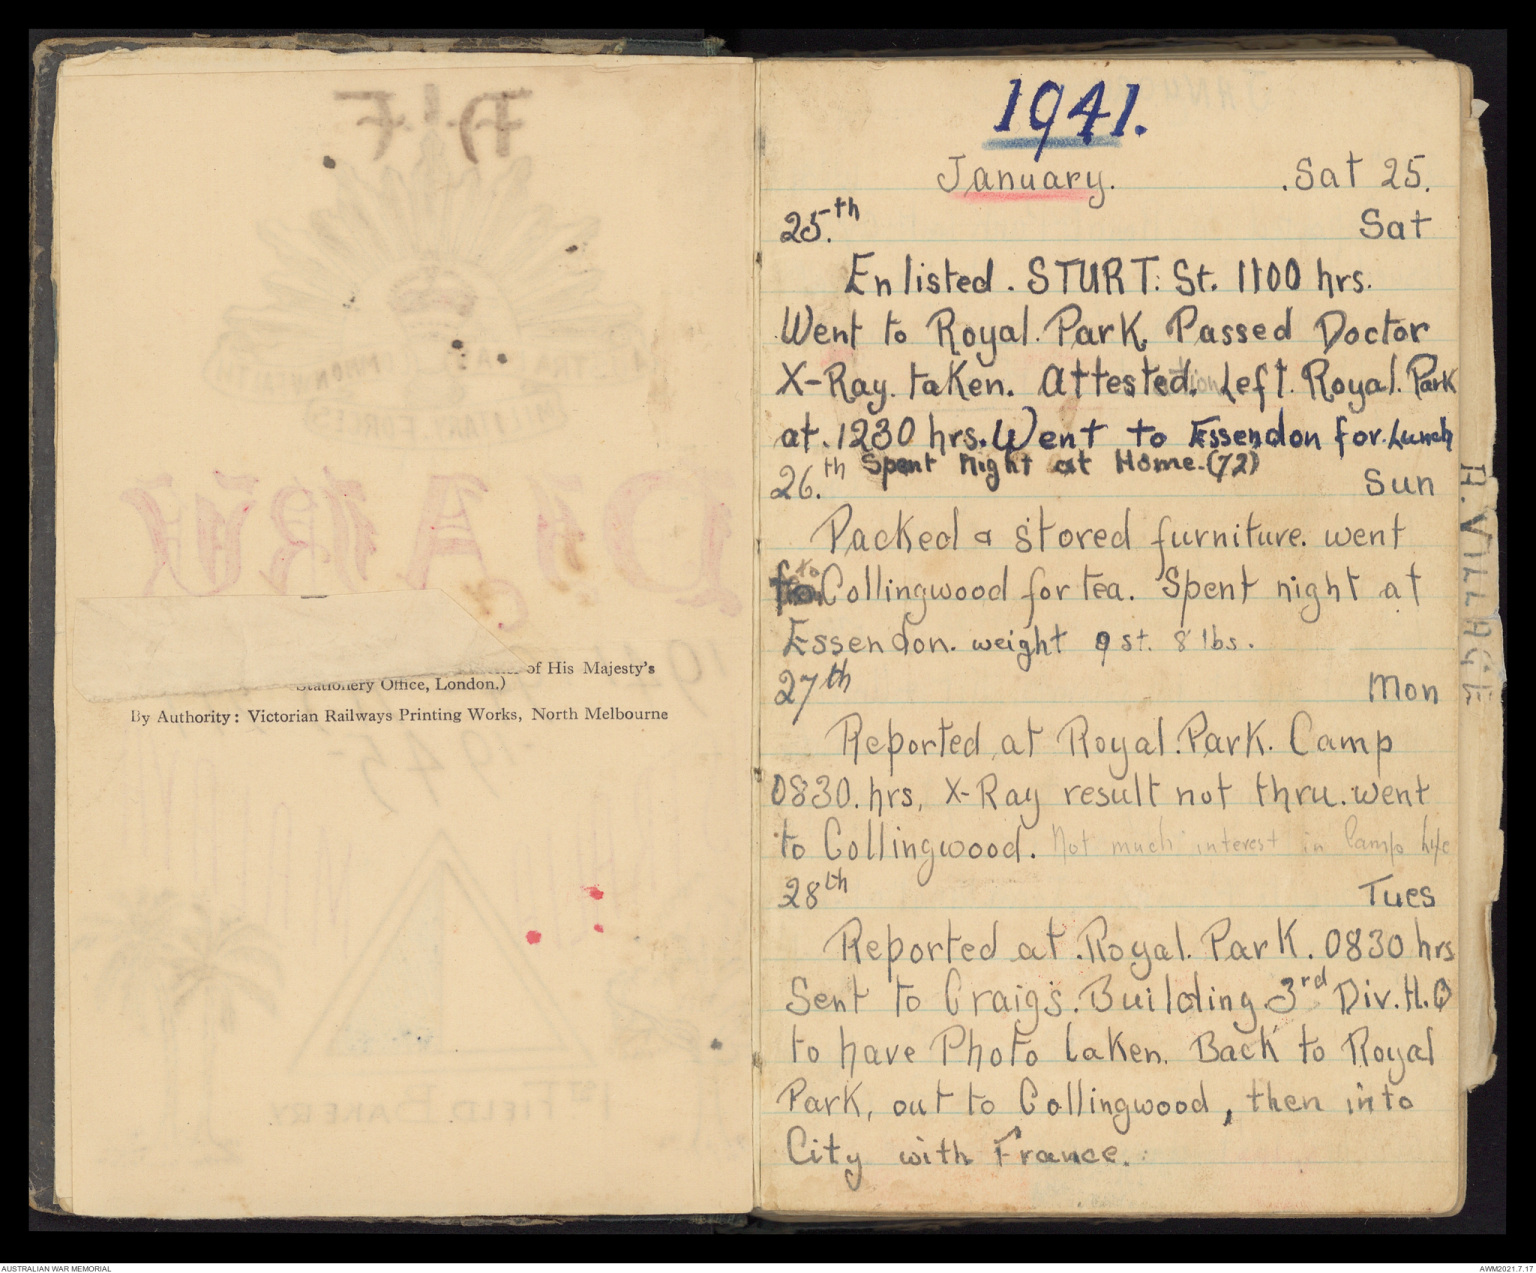 of His Majesty's
Stationery Office, London.)
By Authority: Victorian Railways Printing Works, North Melbourne
1941.
January. .Sat 25.
25.th Sat
Enlisted. STURT. St. 1100 hrs.
Went to Royal. Park, Passed Doctor
X-Ray. taken. Attested. Left. Royal. Park
at. 1230 hrs. Went to Essendon for. Lunch
Spent night at Home. (72)
26.th Sun
Packed & stored furniture. went
to Collingwood for tea. Spent night at
Essendon. weight 9 st. 8 lbs.
27th Mon
Reported at Royal. Park. Camp
0830. hrs, X-Ray result not thru. went
to Collingwood. Not much interest in Camp life
28th Tues
Reported at. Royal. Park. 0830 hrs
Sent to Craig's. Building 3rd Div. H.Q
to have Photo taken. Back to Royal
Park, out to Collingwood, then into
City with France.
H. VILLAGE
AUSTRALIAN WAR MEMORIAL
AWM2021.7.17